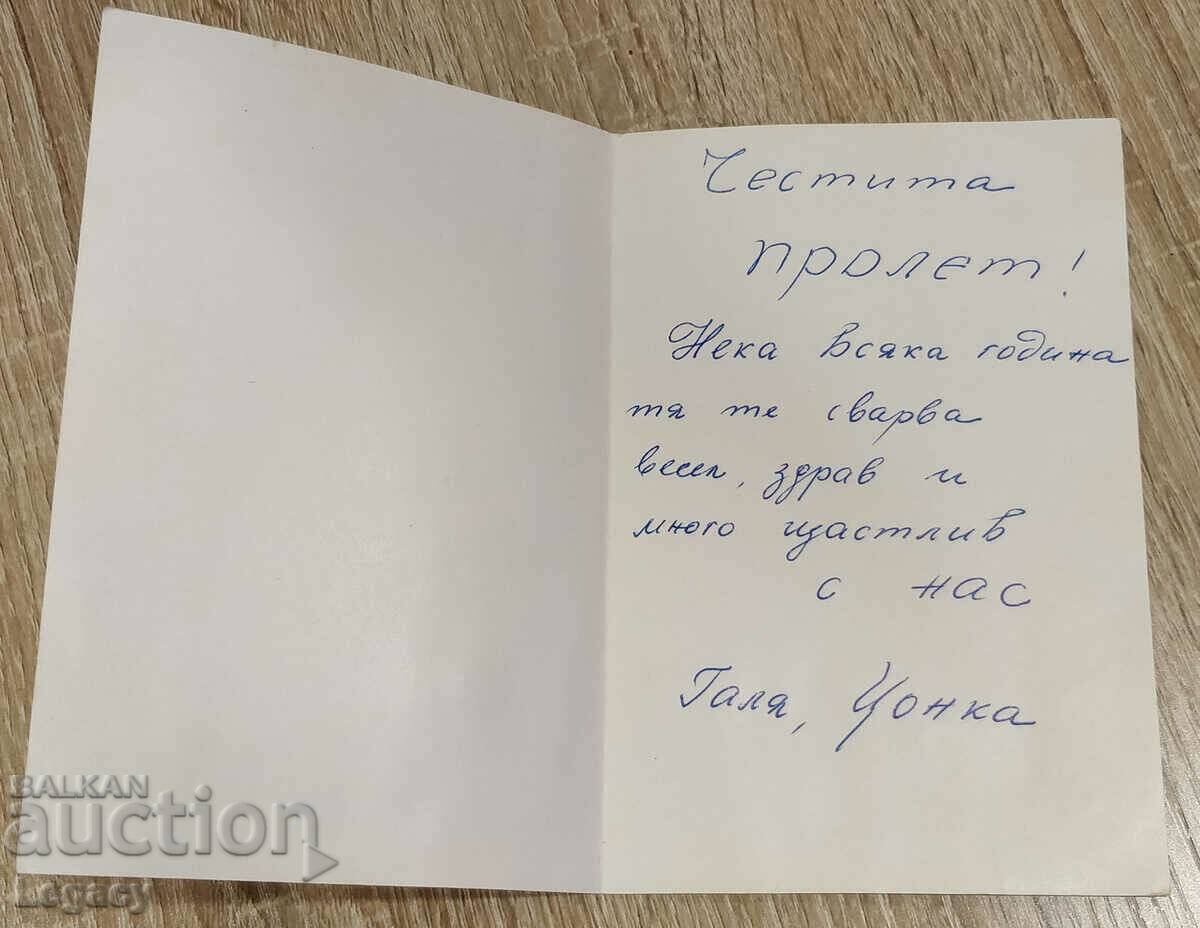 Честита
пролет!
Нека всяка година
тя те сварва
весел, здрав и
много щастлив
с нас
Галя, Цонка
BALKAN
auction
Legacy